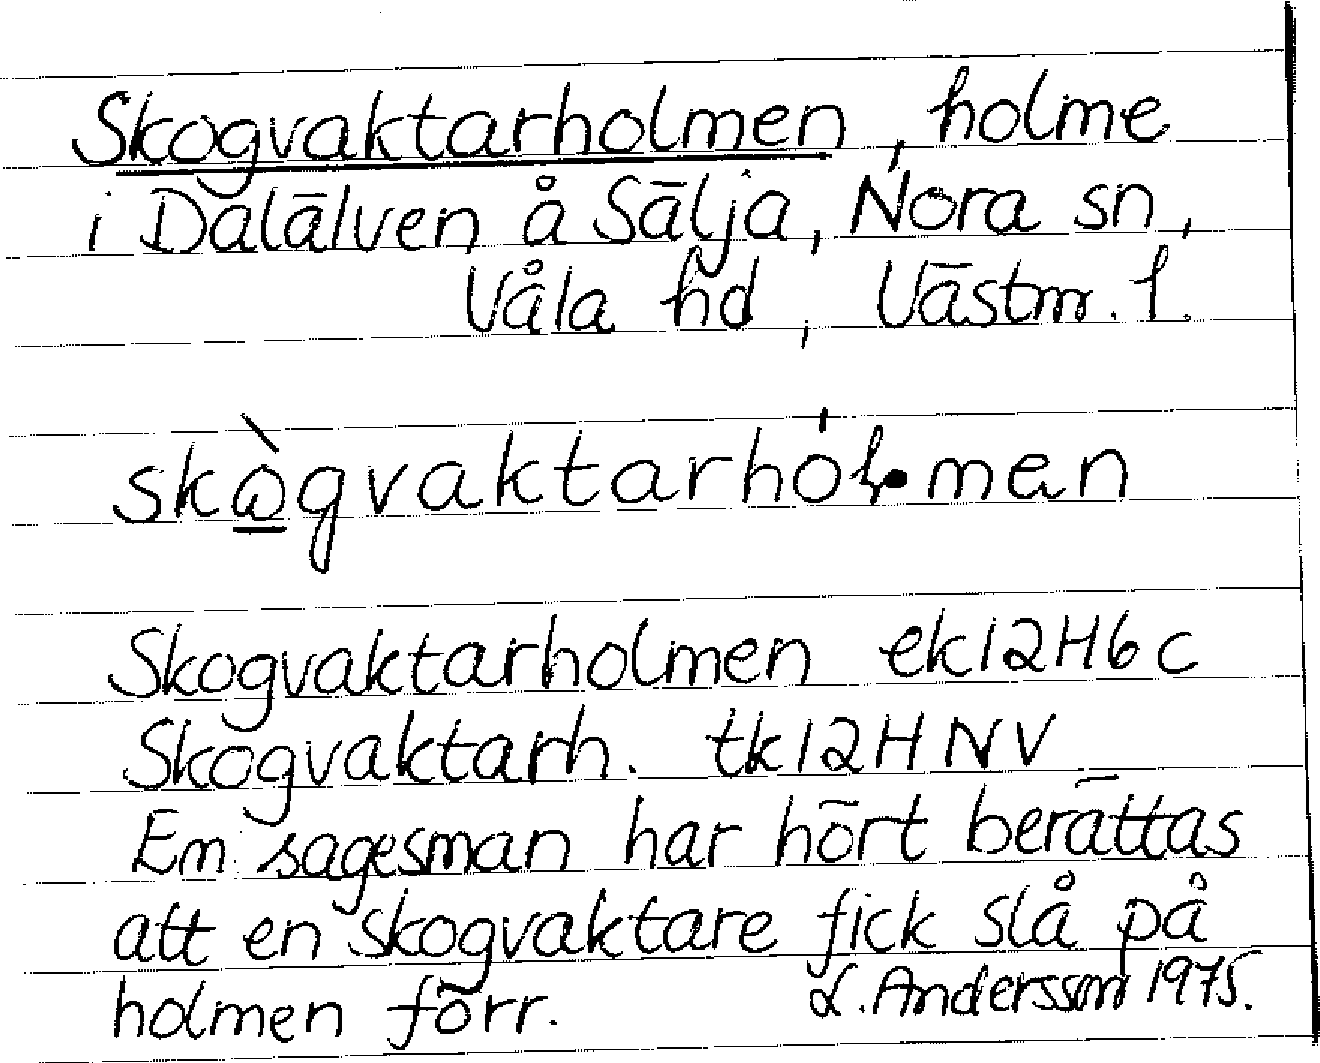 Skogvaktarholmen, holme
i Dalälven å Sälja, Nora sn,
Våla hd, Västm. l.
skògvaktarhól·men
Skogvaktarholmen ek12H6c
Skogvaktarh. tk12HNV
En sagesman har hört berättas
att en skogvaktare fick slå på
holmen förr. L. Andersson 1975.